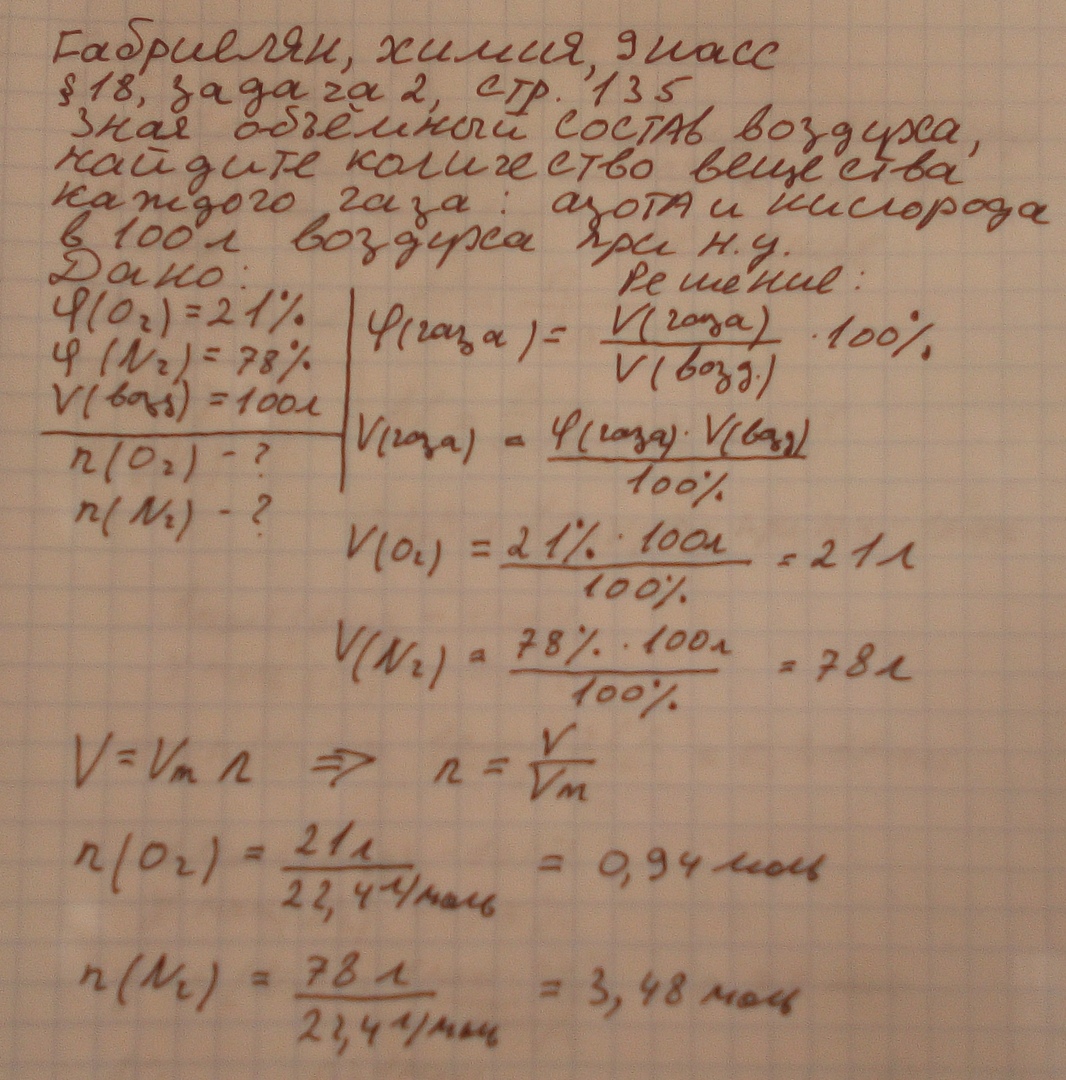 Габриелян, химия, 9 класс
§ 18, задача 2, стр. 135
Зная объёмный состав воздуха,
найдите количество вещества
каждого газа: азота и кислорода
в 100 л воздуха при н.у.
Дано:
Решение:
φ(O₂) = 21%
φ(N₂) = 78%
V(возд) = 100л
n(O₂) - ?
n(N₂) - ?
φ(газа) = V(газа) / V(возд.) · 100%
V(газа) = φ(газа) · V(возд) / 100%
V(O₂) = 21% · 100л / 100% = 21 л
V(N₂) = 78% · 100л / 100% = 78 л
V = Vm n ⇒ n = V / Vm
n(O₂) = 21 л / 22,4 л/моль = 0,94 моль
n(N₂) = 78 л / 22,4 л/моль = 3,48 моль